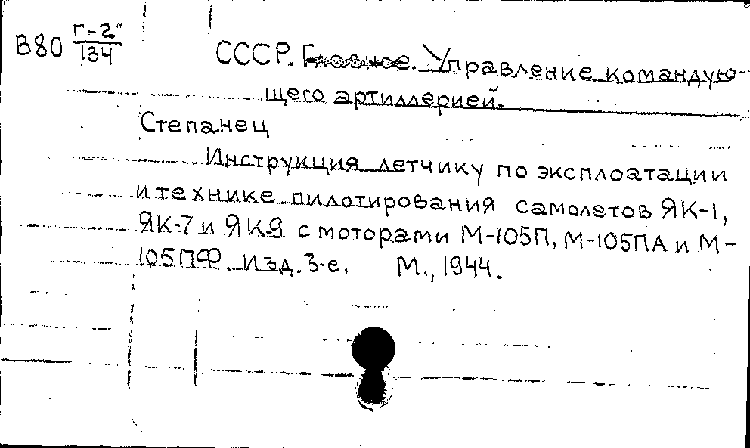 В80 Г-2"/134
СССР. Главное. Управление командую-
щего артиллерией.
Степанец
Инструкция летчику по эксплоатации
и технике пилотирования самолетов ЯК-1,
ЯК-7 и ЯК9 с моторами М-105П, М-105ПА и М-
105ПФ. Изд. 3-е. М., 1944.